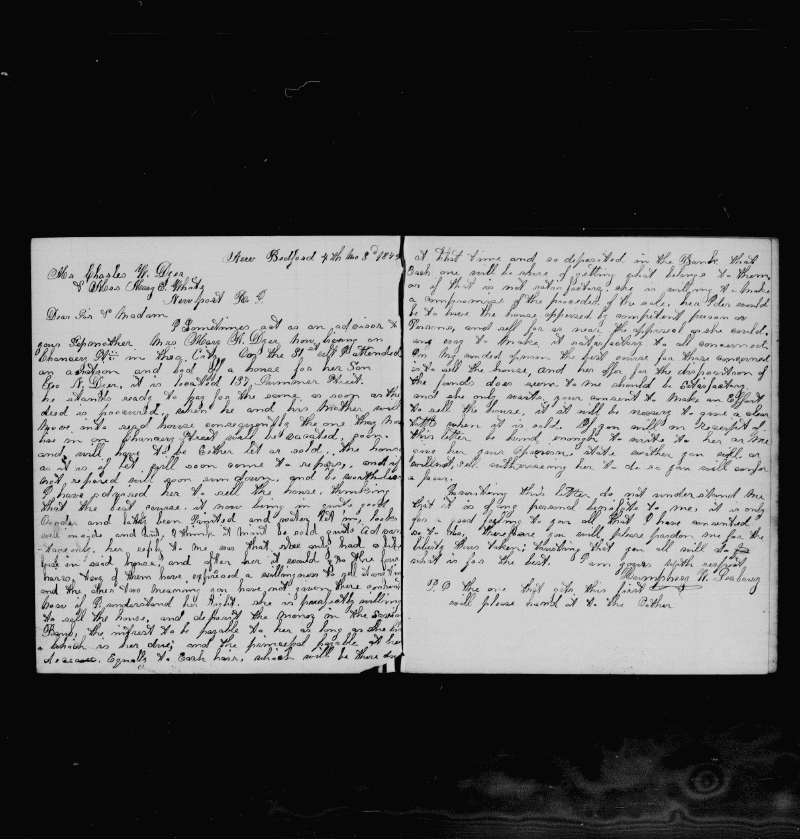 New Bedford 4th Mo 3d
Mr Charles W. Dyer
& Miss Mary E. White
Newport R. I.
Dear Sir & Madam
I Sometimes act as an advisor to
your Stepmother Mrs Mary W. Dyer, now living in
Chancery St in this City. On the 31st ult I attended
an auction and bid off a house for her Son
Geo N. Dyer, it is located 137, Summer Street.
he stands ready to pay for the same as soon as the
deed is procured, when he and his Mother will
Move into said house consequently the one they now
live in on Chancery Street will be vacated, soon.
and will have to be Either let or sold. the house
as it is if let, will soon come to repairs, and if
not repaired will soon run down, and be worthless
I have advised her to sell the house, thinking
that the best course. it now being in quite good
and lately been Painted and
will inside and out, I think it could be sold quite advan
-tageous. her reply to me was that she only had a life
lease in said house and after her it would go to the four
heirs, two of them have expressed a willingness to sell it
and the other two meaning you have not given there consent
I understand her right. she is perfectly willing
to sell the house, and deposit the money in the Savings
Bank, the interest to be payable to her as long as she lives
which is her due; and the principal payable at her
decease, Equally to Each heir, which will be there due
at that time and, so deposited in the Bank that
Each one will be sure of getting what belongs to them,
or if that is not satisfactory she is willing to make
a compromise of the proceeds of the sale. her Idea would
be to have the house apprised by competent person or
Persons, and sell for as near the apprisal as she could.
any way to make it satisfactory to all concerned.
In my candid opinion the best course for those concerned
is to sell the house, and her offer for the disposition of
the funds does seem to me should be satisfactory.
and she only waits your consent to make an Effort
to sell the house, if it will be necessary to give a clear
title when it is sold. If you will on receipt of
this letter be kind enough to write to her or me
give her your opinion, state wether you will or
will not, sell authorising her to do so you will confer
a favor.
In writing this letter do not understand me
that it is of any personal benefit to me, it is only
for a good feeling to you all that I have consented
so to do, therefore you will please pardon me for the
liberty thus taken; trusting that you all will do
what is for the best. I am yours with respect
Humphrey W.
P.S the one that gets this first
will please hand it to the Other